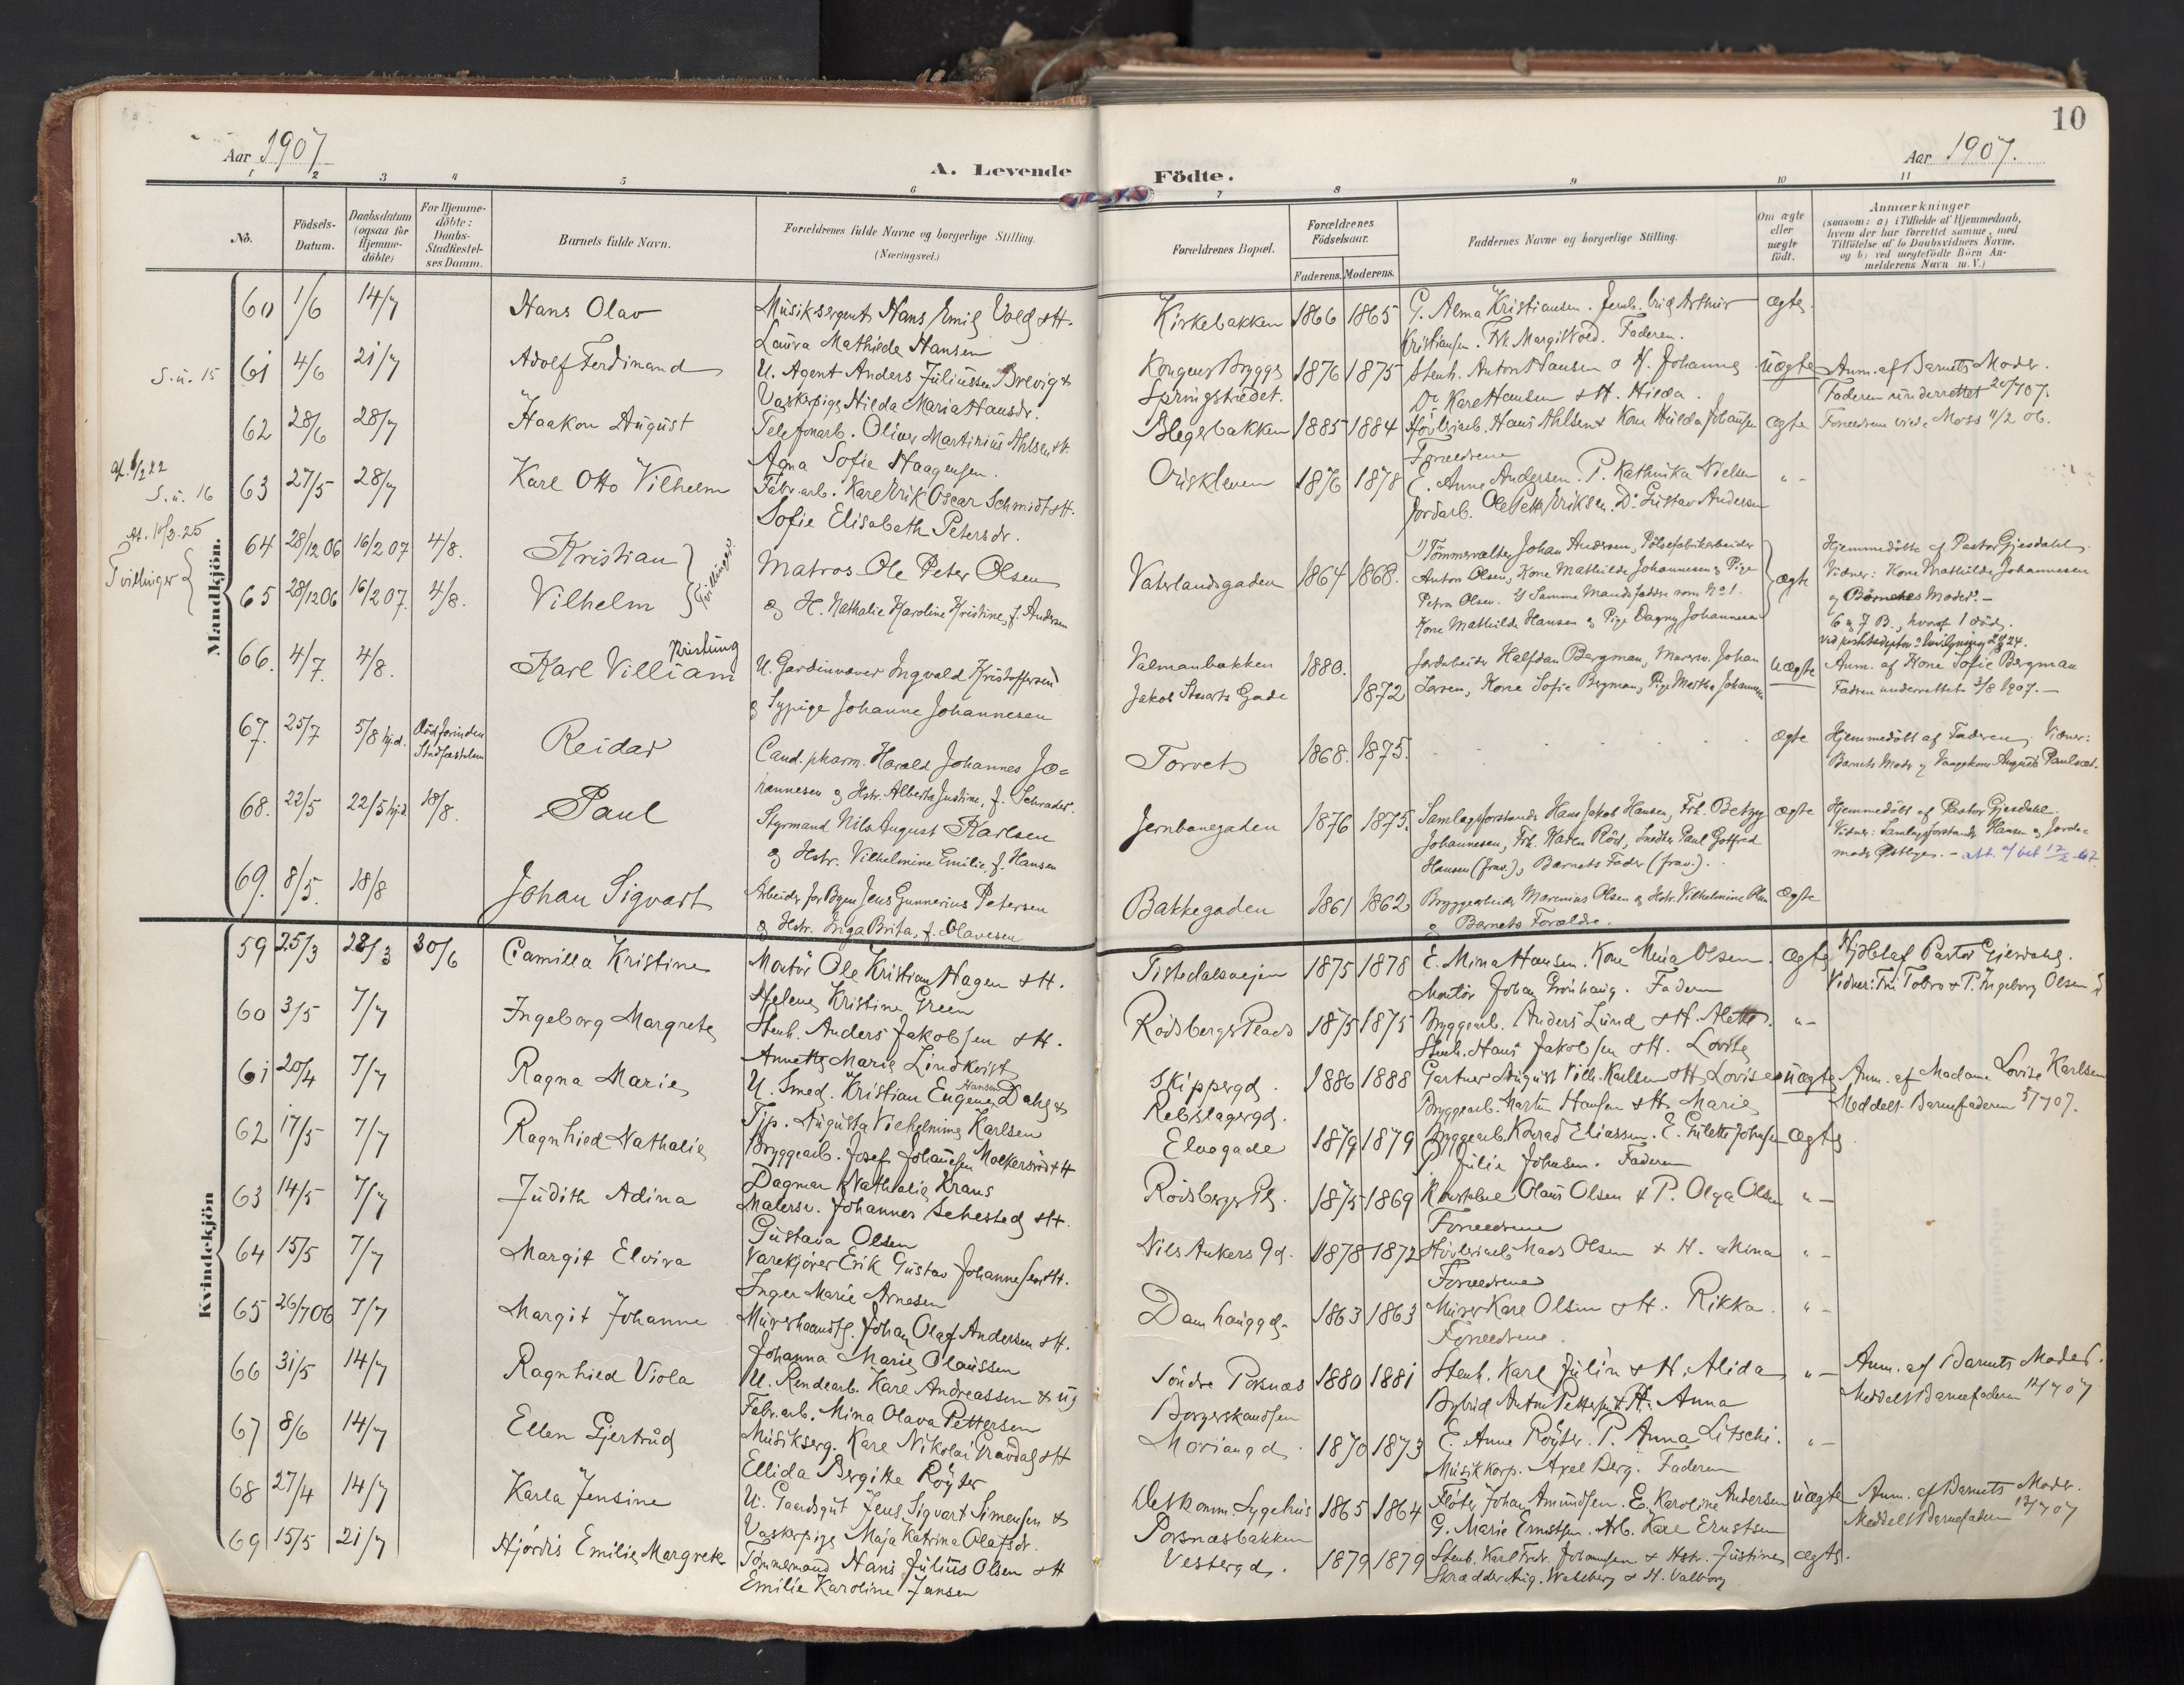 10
Aar 1907
Aar 1907.
A. Levende Födte.
1 2 3 4 5 6 7 8 9 10 11
No.
Födsels-Datum.
Daabsdatum (ogsaa for Hjemme-döbte)
For Hjemme-döbte: Daabs-Stadfæstel-ses Datum.
Barnets fulde Navn.
Forældrenes fulde Navne og borgerlige Stilling. (Næringsvei.)
Forældrenes Bopæl.
Forældrenes Födselsaar.
Faderens. Moderens.
Faddernes Navne og borgerlige Stilling.
Om ægte eller uægte födt.
Anmærkninger
(saasom: a) i Tilfælde af Hjemmedaab,
hvem der har forrettet samme, med
Tilföielse af to Daabsvidners Navne.
og b) ved uægtefödte Börn An-
melderens Navn m. V.)
Mandkjön.
60 1/6 14/7 Hans Olav Musiksergent Hans Emil Vold & H. Kirkebakken 1866 1865 G. Alma Kristiansen. Arthur ægte.
Laura Mathilde Hansen Kristiansen. Frk Margit Vold. Faderen.
S.u. 15 61 4/6 21/7 Adolf Ferdinand U. Agent Anders Juliussen Brevig & Kongens Brygge 1876 1875 Stenh. Anton Hansen & H. Johanne uægte Anm. af Barnets Moder.
Vaskepige Hilda Maria Hansdr. Springstrædet. Do Karl Hansen & H. Hilda. Faderen underrettet 20/7 07.
62 28/6 28/7 Haakon August Telefonarb. Oliver Martinius Ahlsen & H. Blegebakken 1885 1884 Hövleriarb. Hans Ahlsen & Kone Hulda Johansen ægte Forældrene viede Moss 11/2 06.
Agna Sofie Haagensen. Forældrene
S.u. 16 63 27/5 28/7 Karl Otto Vilhelm Fabr. arb. Karl Erik Oscar Schmidt & H. 1876 1878 E. Anne Andersen. P. Kathinka Nielsen " -
Sofie Elisabeth Petersdr. Jordarb. Ole Petter Eriksen. Do Gustav Andersen
At. 10/3 25
Tvillinger
64 28/12 06 16/2 07 4/8. Kristian Matros Ole Peter Olsen Vaterlandsgaden 1864 1868. 1) Tömmervalter Johan Andersen, Pölsefabrikarbeider ægte Hjemmedöbte af Pastor Gjesdahl.
Anton Olsen, Kone Mathilde Johannesen & Pige Vidner: Kone Mathilde Johannesen
65 28/12 06 16/2 07. 4/8. Vilhelm Tvillinger & H. Nathalie Karoline Kristine, f. Andersen Petra Olsen. 2) Samme Mandsfaddre som No 1. og Börnenes Moder. -
Kone Mathilde Hansen & Pige Dagny Johannesen 6 & 7 B., hvoraf 1 död.
66. 4/7. 4/8. Karl Villiam Kristung U. Gardinvæver Ingvald Kristoffersen Valmanbakken 1880. Jordarbeider Halfdan Bergman, Murersv. Johan uægte Anm. af Kone Sofie Bergman
& Sypige Johanne Johannesen Jakob Stuarts Gade 1872 Larsen, Kone Sofie Bergman, Pige Martha Johannesen Faderen underrettet 3/8 1907. -
67. 25/7 5/8 hjd. Död forinden Stadfæstelsen Reidar Cand. pharm. Harald Johannes Jo- Torvet 1868. 1875. ægte Hjemmedöbt af Faderen. Vidner:
hannesen & Hstr. Alberta Justine, f. Schrader. Barnets Moder og Vaagekone Augusta
68. 22/5 22/5 hjd 18/8. Paul Styrmand Nils August Karlsen Jernbanegaden 1876 1875. Samlagsforstander Hans Jakob Hansen, Frk. Betzy ægte Hjemmedöbt af Pastor Gjesdahl.
& Hstr. Vilhelmine Emilie, f. Hansen Johannesen, Frk. Karen Röd, Snedker Paul Gotfred Vidner: Samlagsforstander Hansen og Jorde-
Hansen (frav.), Barnets Fader (frav.). moder Östbye. -
69. 8/5. 18/8 Johan Sigvart Arbeider for Byen Jens Gunnerius Petersen Bakkegaden 1861 1862 Bryggearbeider Marenius Olsen & Hstr. Vilhelmine Olsen ægte
& Hstr. Inga Brita, f. Olavesen & Barnets Forældre.
Kvindekjön
59 25/3 28/3 30/6 Camilla Kristine Montör Ole Kristian Hagen & H. Tistedalsveien 1875 1878 E. Mina Hansen. Kone Mina Olsen. ægte Hjdbt af Pastor Gjesdahl.
Helene Kristine Green Montör Johan Grönhaug. Faderen Vidner: Frk Tobro & P. Ingeborg Olsen
60 3/5 7/7 Ingeborg Margrete Stenh. Anders Jakobsen & H. Rödsbergs Plads 1875 1875 Bryggearb. Anders Lund & H. Alette. " -
Annette Marie Lindkvist Stenh. Hans Jakobsen & H. Lovise
61 20/4 7/7 Ragna Marie U. Smed. Kristian Eugene Hansen Dahl & Skippergd. 1886 1888 Gartner August Vilh. Karlsen & H. Lovise uægte Anm. af Madame Lovise Karlsen
Tjp. Augusta Vilhelmine Karlsen Rebslagergd. Bryggearb. Martin Hansen & H. Marie Meddelt Barnefaderen 5/7 07.
62 17/5 7/7 Ragnhild Nathalie Bryggearb. Josef Johansen Molkersröd & H Elvegade 1879 1879 Bryggearb. Konrad Eliassen. E. Gulette Johnsen ægte
Dagmar Nathalie Krans P. Julie Johnsen. Faderen
63 14/5 7/7 Judith Adina Malersv. Johannes Sehested & H. Rödsbergs Pl. 1875 1869 Konstabel Olaus Olsen & P. Olga Olsen " -
Gustava Olsen Forældrene
64 15/5 7/7 Margit Elvira Varekjörer Erik Gustav Johannesen & H. Nils Ankers Gd. 1878 1872 Hövleriarb. Mads Olsen & H. Mina " -
Inger Marie Arnesen Forældrene
65 26/7 06 7/7 Margit Johanne Murerhaandtl. Johan Olaf Andersen & H. Damhauggd. 1863 1863 Murer Karl Olsen & H. Rikka. " -
Johanna Marie Olaussen Forældrene.
66 31/5 14/7 Ragnhild Viola U. Rendearb. Karl Andreassen & ug Söndre Posnæs 1880 1881 Stenh. Karl Julin & H. Alida " - Anm. af Barnets Moder.
Fabr. arb. Mina Olava Pettersen Anton Pettersen & H. Anna Meddelt Barnefaderen 12/7 07
67 8/6 14/7 Ellen Gjertrud Musikserg. Karl Nikolai Vravdal & H Moriangd. 1870 1873 E. Anne Röyter. P. Anna Litschi. " -
Ellida Bergitte Röyter Musikkorp. Axel Berg. Faderen
68 27/4 14/7 Karla Jensine U. Gaardsgut Jens Sigvart Simensen & Det komm. Sygehus 1865 1864 Flöter Johan Amundsen. E. Karoline Andersen uægte Anm. af Barnets Moder.
Vaskepige Maja Katrina Olafsdr. Posnæsbakken G. Marie Ernstsen. Arb. Karl Ernstsen Meddelt Barnefaderen 12/7 07
69 15/5 21/7 Hjördis Emilie Margrete Tömmermand Hans Julius Olsen & H Vestergd. 1879 1879 Stenh. Karl Fredr. Johannsen & Hstr. Justine ægte.
Emilie Karoline Jansen Skrædder Aug. Wahlberg & H. Valborg